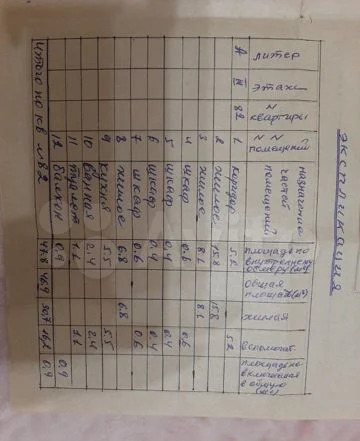 экспликация
литер
этаж
N
квартиры
N N
помещений
назначение
частей
помещений
площадь по
внутреннему
обмеру (м²)
общая
площадь (м²)
жилая
вспомогат.
площадь не
включенная
в общую
(м²)
А III 82 1 коридор 5.2 5.2
2 жилое 15.8 15.8
3 жилое 8.1 8.1
4 шкаф 0.6 0.6
5 шкаф 0.4 0.4
6 шкаф 0.4 0.4
7 шкаф 0.6 0.6
8 жилое 6.8 6.8
9 кухня 5.5 5.5
10 ванная 2.4 2.4
11 туалет 1.1 1.1
12 балкон 0.9 0.9
Итого по кв. №82 47.8 46.9 30.7 16.2 0.9